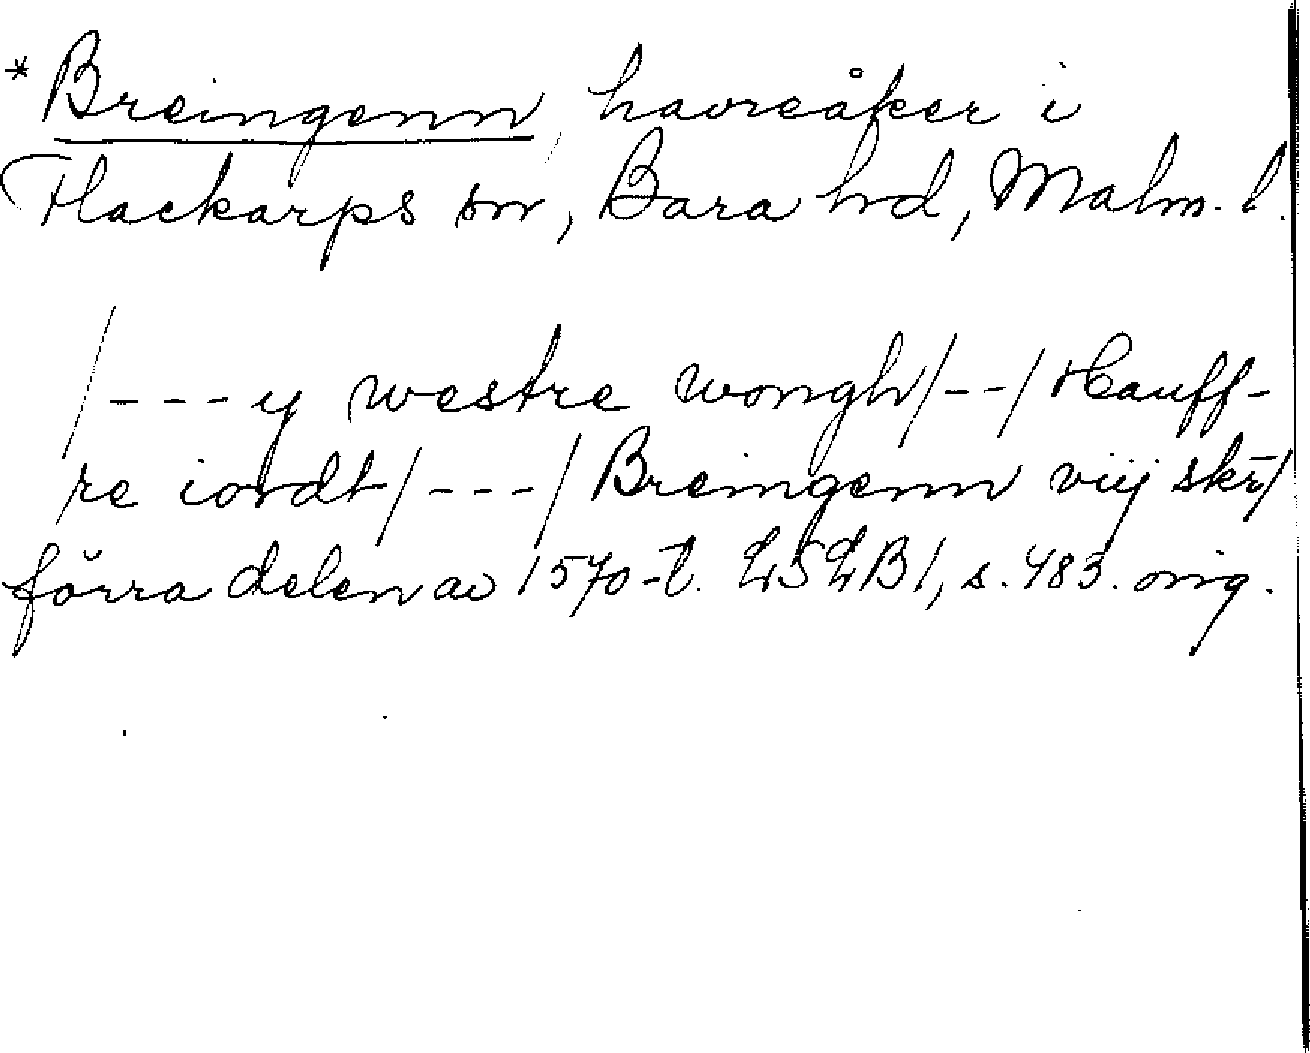 * Breingenn, havreåker i
Flackarps sn, Bara hd, Malm. l.
/---y westre wongh/--/Hauff-
re iordt/---/Breingenn viij skr/
förra delen av 1570-t. LSLB 1, s. 483. orig.